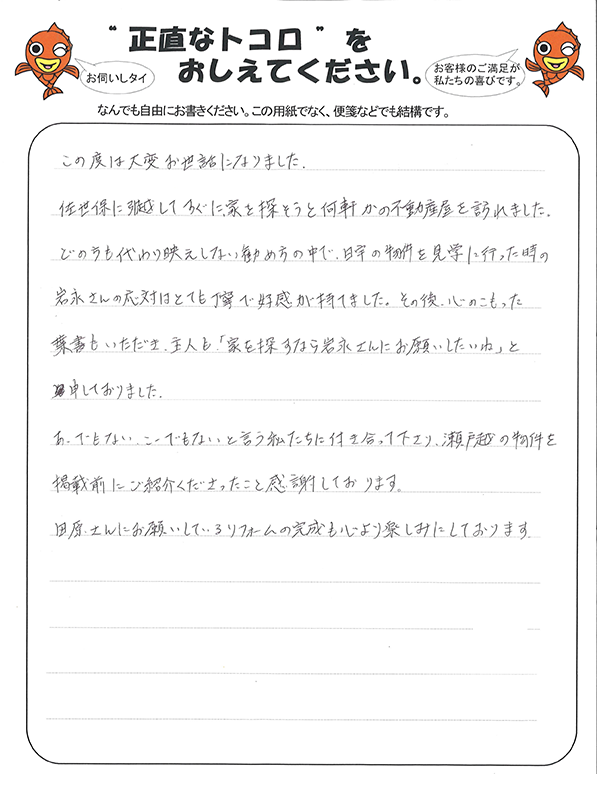 “正直なトコロ”を
おしえてください。
お伺いしタイ
お客様のご満足が
私たちの喜びです。
なんでも自由にお書きください。この用紙でなく、便箋などでも結構です。
この度は大変お世話になりました.
佐世保に引越ししてすぐに、家を探そうと何軒かの不動産屋を訪れました。
どのうちも代わり映えしない勧め方の中で、日宇の物件を見学に行った時の
岩永さんの応対はとても丁寧で好感が持てました。その後、心のこもった
葉書もいただき、主人も「家を探すなら岩永さんにお願いしたいね」と
申しておりました.
あーでもない、こーでもないと言う私たちに付き合って下さり、瀬戸越の物件を
掲載前にご紹介くださったこと感謝しております。
田原さんにお願いしているリフォームの完成も心より楽しみにしております.